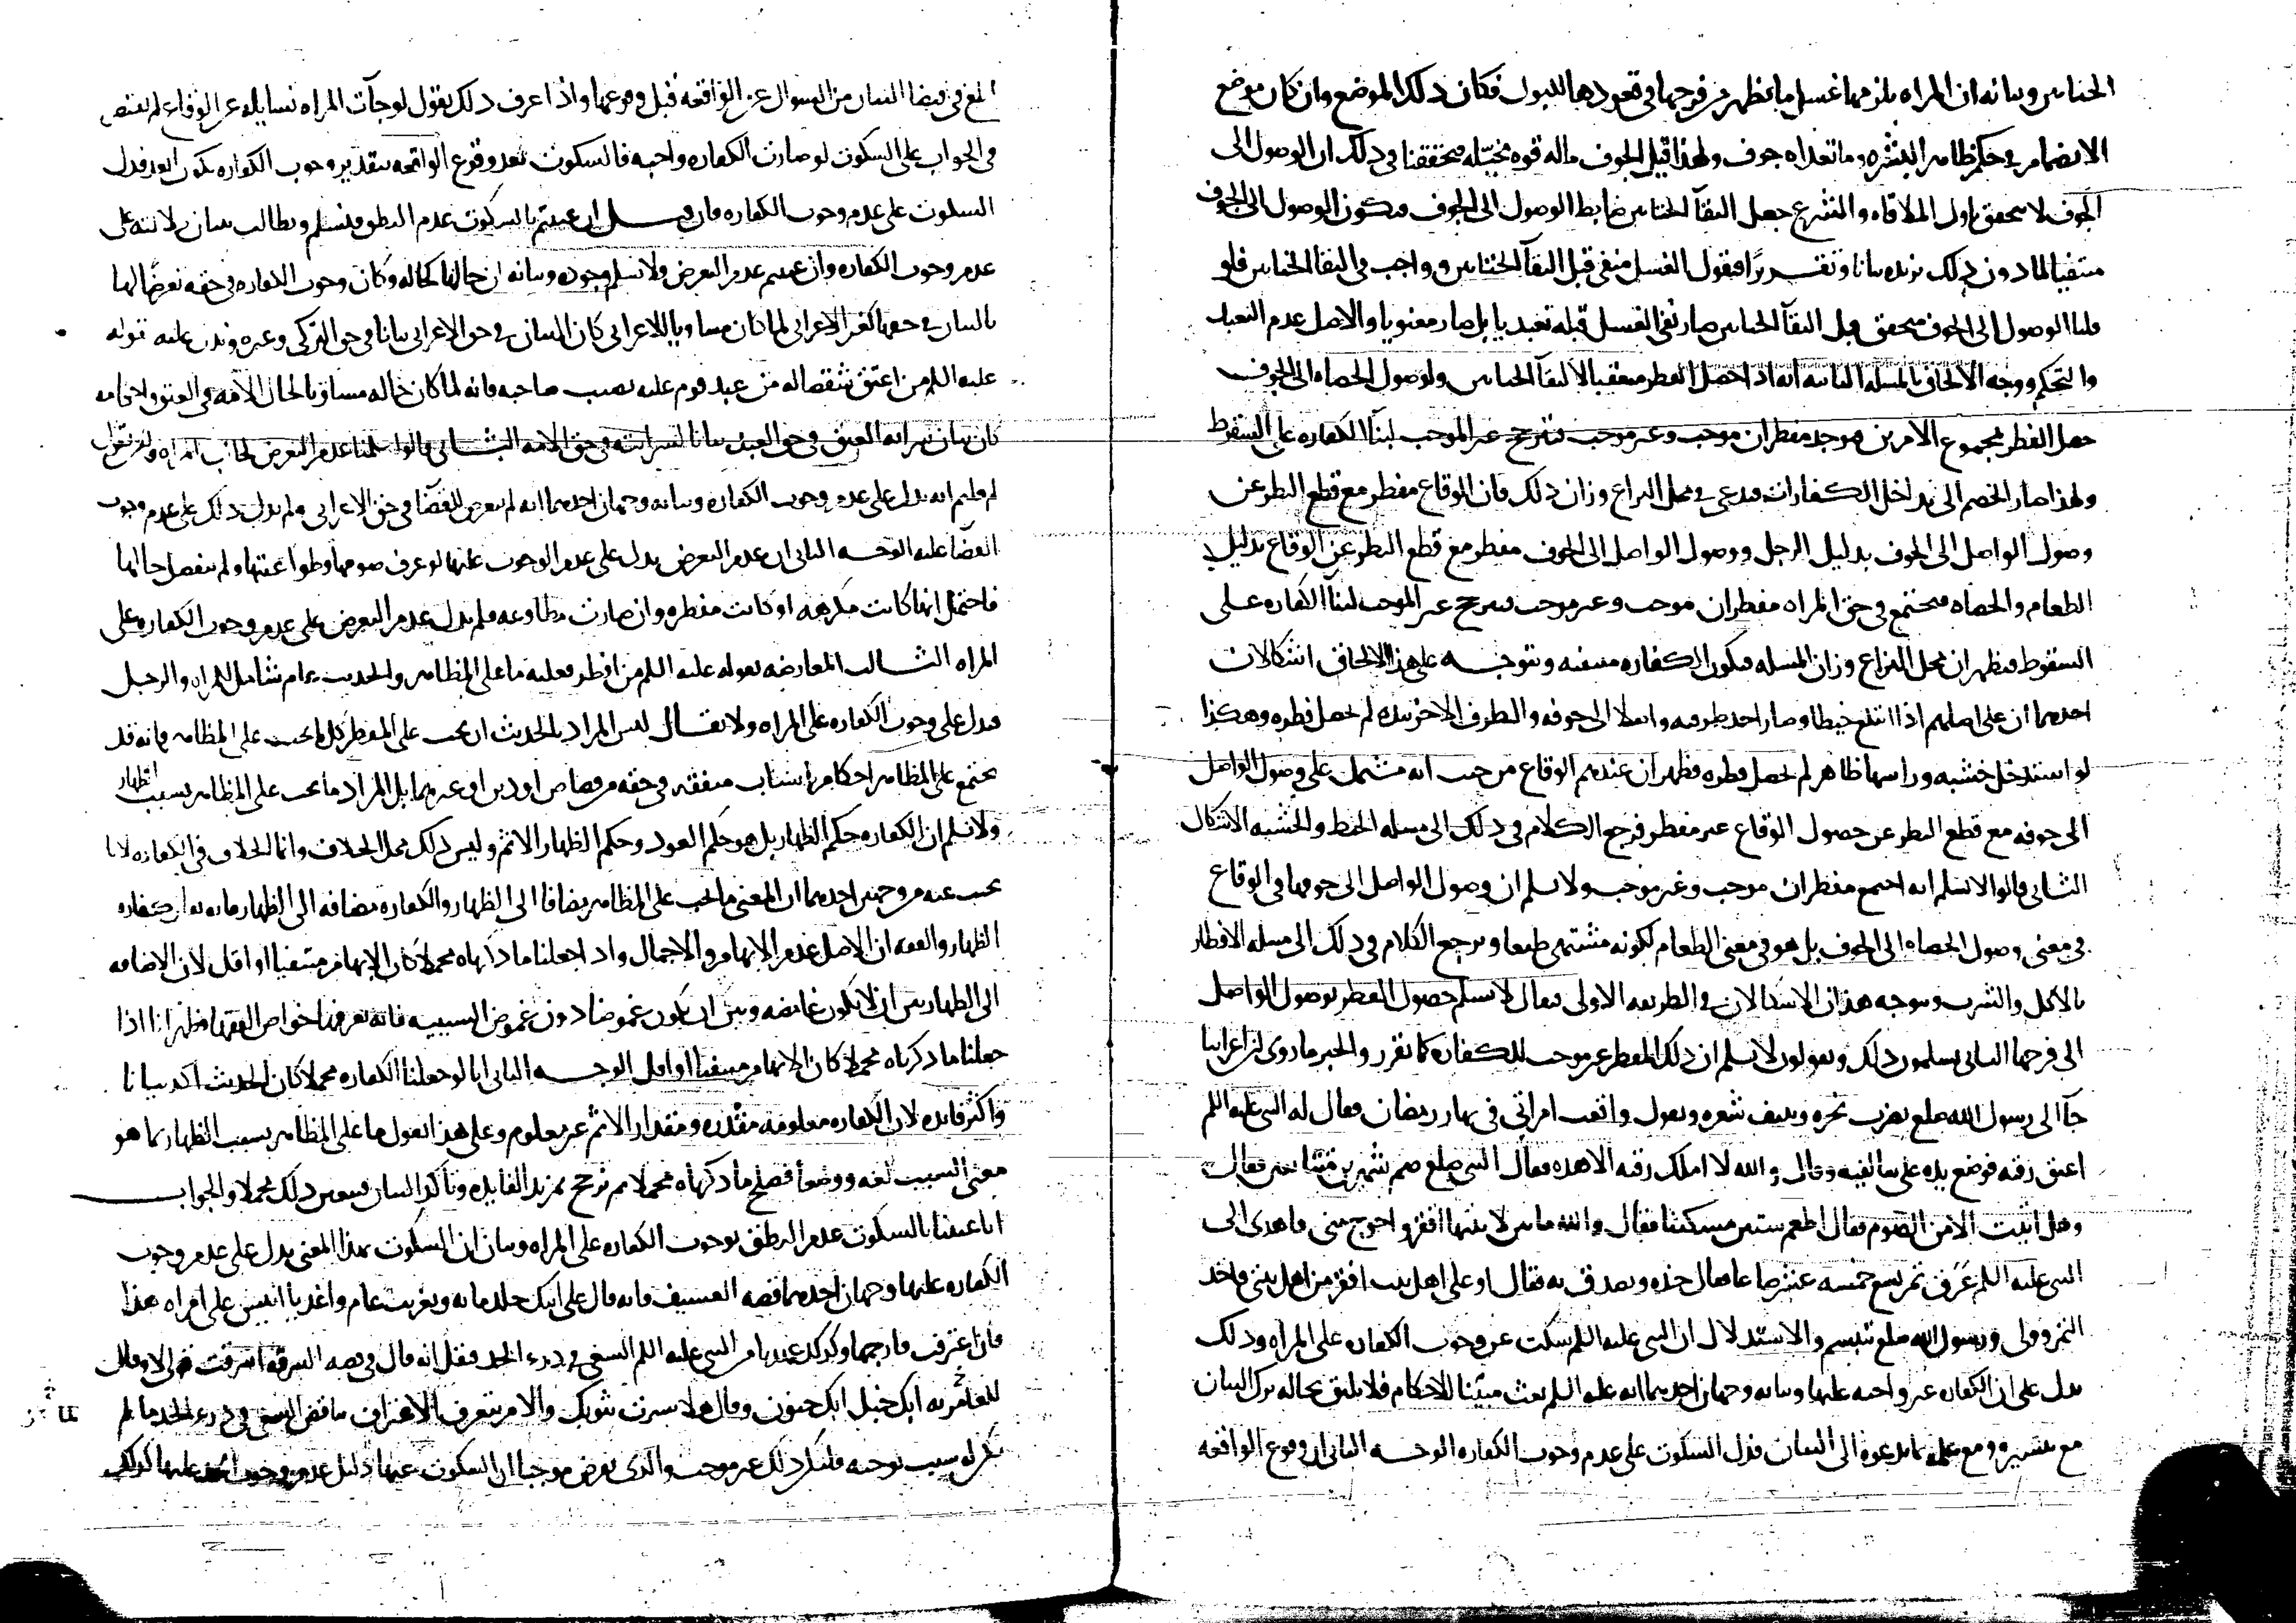 الختانين وبيانه ان المراه يلزمها غسل ما يظهر من فرجها في قعودها للبول فكان ذلك الموضع وان كان موضع
الانضمام في حكم ظاهر البشره وما تعداه جوف ولهذا قيل الجوف ماله قوه محيله فتحققنا في ذلك ان الوصول الى
الجوف لا يتحقق باول الملاقاه والشرع جعل التقآ الختانين ضابط الوصول الى الجوف فيكون الوصول الى الجوف
منتفيا لما دون ذلك نزيده بيانا وتقريرًا فنقول الغسل منفي قبل التقآ الختانين وواجب في التقا الختانين فلو
قلنا الوصول الى الجوف متحقق قبل التقآ الختانين صار نفي الغسل قبله تعبديا بل صار معنويا والاصل عدم التعبد
والتحكم ووجه الالحاق بالمسله الثانيه انه اذا حصل الفطر متعقبا لالتقآ الختانين ولوصول الحصاه الى الجوف
حصل الفطر بمجموع الامرين فوجد مفطران موجب وغير موجب فترجح غير الموجب لبنآ الكفاره على السقوط
ولهذا صار الخصم الى تداخل الكفارات فندعي في محل النزاع وزان ذلك فان الوقاع مفطر مع قطع النظر عن
وصول الواصل الى الجوف بدليل الرجل ووصول الواصل الى الجوف مفطر مع قطع النظر عن الوقاع بدليل
الطعام والحصاه فيجتمع في حق المراه مفطران موجب وغير موجب فيترجح غير الموجب لبنآ الكفاره على
السقوط فيظهر ان محل النزاع وزان المسله فيكون الكفاره منتفيه ويتوجه على هذا الالحاق اشكالات
احدهما ان على اصلهم اذا ابتلع خيطا وصار احد طرفيه واصلا الى جوفه والطرف الاخر بيده لم يحصل فطره وهكذا
لو استدخل خشبه وراسها ظاهر لم يحصل فطره فظهر ان عندهم الوقاع من حيث انه مشتمل على وصول الواصل
الى جوفه مع قطع النظر عن حصول الوقاع غير مفطر فرجع الكلام في ذلك الى مسله الخيط والخشبه الاشكال
الثاني قالوا لا نسلم انه اجتمع مفطران موجب وغير موجب ولا نسلم ان وصول الواصل الى جوفها في الوقاع
في معنى وصول الحصاه الى الجوف بل هو في معنى الطعام لكونه مشتهى طبعا ويرجع الكلام في ذلك الى مسله الافطار
بالاكل والشرب ويتوجه هذان الاشكالان في الطريقه الاولى فيقال لا نسلم حصول الفطر بوصول الواصل
الى فرجها الثاني يسلمون ذلك ويقولون لا نسلم ان ذلك المفطر غير موجب للكفاره كما تقرر والخبر ما روي ان اعرابيا
جآ الى رسول الله صلع يضرب نحره وينتف شعره ويقول واقعت امراتي في نهار رمضان فقال له النبي عليه السلم
اعتق رقبه فوضع يده على سالفيه وقال والله لا املك رقبه الا هذه فقال النبي صلع صم شهرين متتابعين فقال
وهل اتيت الا من الصوم فقال اطعم ستين مسكينا فقال والله ما بين لابتيها افقر واحوج مني فاهدى الى
النبي عليه السلم عَرَق تمر يسع خمسه عشر صاعا فقال خذه وتصدق به فقال او على اهل بيت افقر من اهل بيتي فاخذ
التمر وولى ورسول الله صلع يتبسم والاستدلال ان النبي عليه السلم سكت عن وجوب الكفاره على المراه وذلك
يدل على ان الكفاره غير واجبه عليها وبيانه وجهان احدهما انه عليه السلم بعث مبينا للاحكام فلا يليق بحاله ترك البيان
مع تيسيره ومع علمه بما يدعوه الى البيان فدل السكوت على عدم وجوب الكفاره الوجه الثاني ان وقوع الواقعه
ابلغ في اقتضا البيان من السوال عن الواقعه قبل وقوعها واذا عرف ذلك نقول لو جآت المراه تسايله عن الوقاع لم يقتصر
في الجواب على السكوت لو صارت الكفاره واجبه فالسكوت بعد وقوع الواقعه بتقدير وجوب الكفاره يكون ابعد فدل
السكوت على عدم وجوب الكفاره فان قيل ان عنيتم بالسكوت عدم النطق فنسلم ونطالب ببيان دلالته على
عدم وجوب الكفاره وان عنيتم عدم التعرض ولا نسلم وجوده وبيانه ان حالها كحاله وكان وجوب الكفاره في حقه تعرضا لها
بالبيان في حقها كغير الاعرابي لما كان مساويا للاعرابي كان البيان في حق الاعرابي بيانا في حق التركي وغيره ويدل عليه قوله
عليه السلم من اعتق شقصا له من عبد قوم عليه نصيب صاحبه فانه لما كان حاله مساويا لحال الامه في العتق واحكامه
كان بيان سرايه العتق في حق العبد بيانا لسرايته في حق الامه الثاني قالوا سلمنا عدم التعرض لجانب المراه ولم نقول
لم قلتم انه يدل على عدم وجوب الكفاره وبيانه وجهان احدهما انه لم يتعرض للقضآ في حق الاعرابي ولم يدل ذلك على عدم وجوب
القضآ عليه الوجه الثاني ان عدم التعرض يدل على عدم الوجوب عليها لو عرف صومها وطواعيتها ولم يتفصل حالها
فاحتمل انها كانت مكرهه او كانت مفطره وان صارت مطاوعه فلم يدل عدم التعرض على عدم وجوب الكفاره على
المراه الثالث المعارضه بقوله عليه السلم من افطر فعليه ما على المظاهر والحديث عام شامل للمراه والرجل
فدل على وجوب الكفاره على المراه ولا يقال ليس المراد بالحديث ان يجب على المفطر كل ما يجب على المظاهر فانه قد
يجتمع على المظاهر احكام باسباب متفقه في حقه من قصاص او دين او غيرهما بل المراد ما يجب على المظاهر بسبب الظهار
ولا نسلم ان الكفاره حكم الظهار بل هو حكم العود وحكم الظهار الاثم وليس ذلك محل الخلاف وانما الخلاف في الكفاره لانا
نجيب عنه من وجهين احدهما ان المعني ما يجب على المظاهر مضافا الى الظهار والكفاره مضافه الى الظهار فانه يقال كفاره
الظهار والفقه ان الاصل عدم الابهام والاجمال واذا جعلنا ما ذكرناه محملا كان الابهام منتفيا او اقل لان الاضافه
الى الظهار بين ان لا يكون غامضه وبين ان يكون غموضا دون غموض السببيه فانه يعرفها خواص الفقها فظهر انا اذا
جعلنا ما ذكرناه محملا كان الابهام منتفيا او اقل الوجه الثاني انا لو جعلنا الكفاره محملا كان الحديث اكد بيانا
واكثر فايده لان الكفاره معلومه مقدره ومقدار الاثم غير معلوم وعلى هذا نقول ما على المظاهر بسبب الظهار بما هو
معنى السبب لغه ووضعا فصلح ما ذكرناه محملا ثم ترجح بمزيد الفايده وتاكد البيان فيتعين ذلك محملا والجواب
انا عنينا بالسكوت عدم النطق بوجوب الكفاره على المراه وبيان ان السكوت بهذا المعنى يدل على عدم وجوب
الكفاره عليها وجهان احدهما قصه العسيف فانه قال على ابنك جلد مايه وتغريب عام واغد يا انيس على امراه هذا
فان اعترفت فارجمها النبي عليه السلم السعي في درء الحد فقل انه قال في قصه السرقه اسرقت قولي لا وقال
للغامديه ابك خبل ابك جنون وقال هلا سترت بثوبك والامر بتعرف الاعتراف يناقض السعي في درء الحد ما لم
يكن له سبب يوجبه فليكن ذلك غير موجب والذي يعرض موجبا ان السكوت عنها دليل عدم وجوب الحد عليها